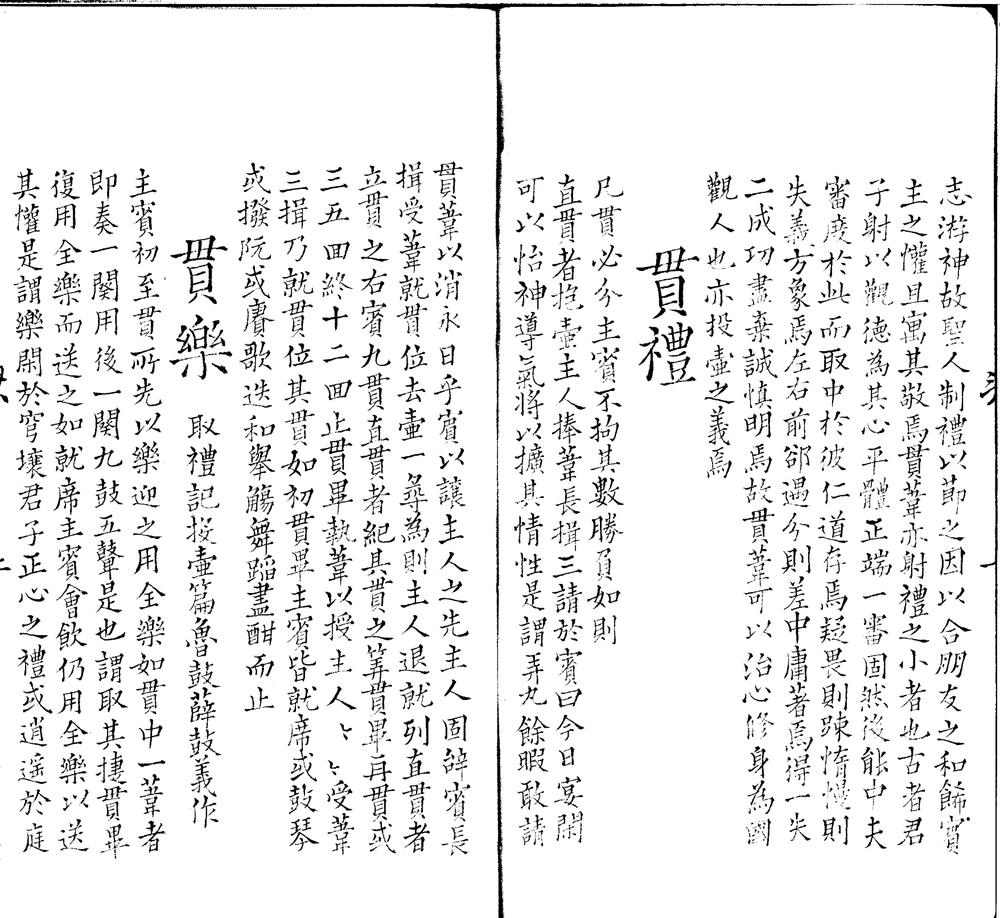 志游神故聖人制禮以節之因以合朋友之和餙賓
主之懽且寓其敬焉貫葦亦射禮之小者也古者君
子射以觀徳為其心平體正端一審固然後能中夫
審度於此而取中於彼仁道存焉疑畏則踈惰慢則
失義方象焉左右前郤過分則差中庸著焉得一失
二成功盡棄誠慎明焉故貫葦可以治心修身為國
觀人也亦投壷之義焉
貫禮
凡貫必分主賓不拘其數勝負如則
直貫者抱壷主人捧葦長揖三請於賓曰今日宴閑
可以怡神導氣將以擴其情性是謂弄丸餘暇敢請
貫葦以消永日乎賓以讓主人之先主人固辭賓長
揖受葦就貫位去壷一尋為則主人退就列直貫者
立貫之右賓九貫直貫者紀其貫之筭貫畢再貫或
三五囬終十二囬止貫畢執葦以授主人〻〻受葦
三揖乃就貫位其貫如初貫畢主賓皆就席或鼓琴
或撥阮或賡歌迭和舉觴舞蹈盡酣而止
貫樂 取禮記投壷篇魯鼓薛鼓義作
主賓初至貫所先以樂迎之用全樂如貫中一葦者
即奏一闋用後一闋九鼓五鼙是也謂取其捷貫畢
復用全樂而送之如就席主賓會飲仍用全樂以送
其懽是謂樂閑於穹壤君子正心之禮或逍遥於庭